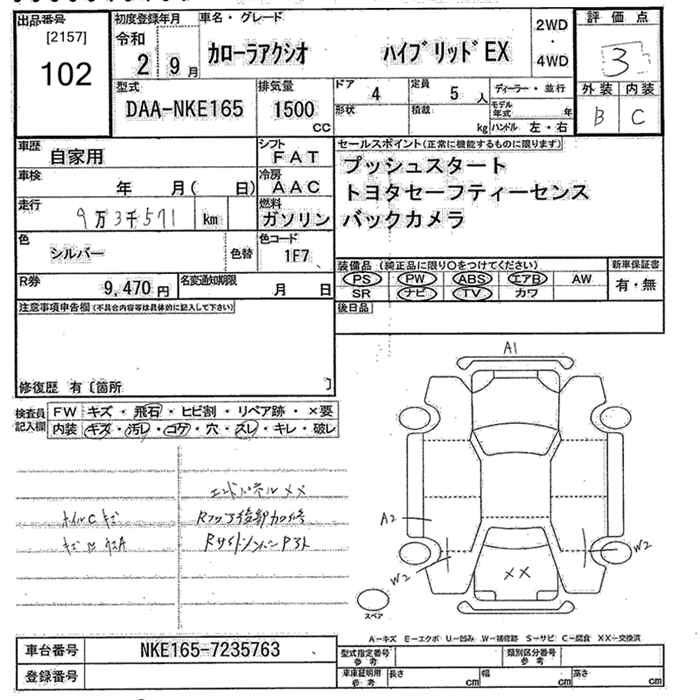 出品番号
[2157]
102
初度登録年月
令和
2 9月
車名・グレード
カローラアクシオ ハイブリッドEX
2WD
・
4WD
評価点
3
外装 内装
B C
型式
DAA-NKE165
排気量
1500
cc
ドア
4
定員
5 人
形状
積載
kg
ディーラー・並行
モデル年式 年
ハンドル 左・右
車歴
自家用
シフト
FAT
車検
年 月( 日)
冷房
AAC
走行
9万3千571 km
燃料
ガソリン
色
シルバー
色替
色コード
1F7
R券
9,470 円
名変通知期限
月 日
セールスポイント(正常に機能するものに限ります)
プッシュスタート
トヨタセーフティーセンス
バックカメラ
装備品(純正品に限り〇をつけてください)
新車保証書
PS PW ABS エアB AW
SR ナビ TV カワ
有・無
後日品
注意事項申告欄(不具合内容等は具体的に記入して下さい)
修復歴 有〔箇所 〕
検査員
記入欄
FW キズ・飛石・ヒビ割・リペア跡・×要
内装 キズ・汚レ・コゲ・穴・スレ・キレ・破レ
エンドパネルXX
A1
A2
W2
W2
XX
スペア
A-キズ E-エクボ U-凹み W-補修跡 S-サビ C-腐食 XX-交換済
車台番号
NKE165-7235763
登録番号
型式指定番号
参考
類別区分番号
参考
車庫証明用
参考
長さ cm 幅 cm 高さ cm